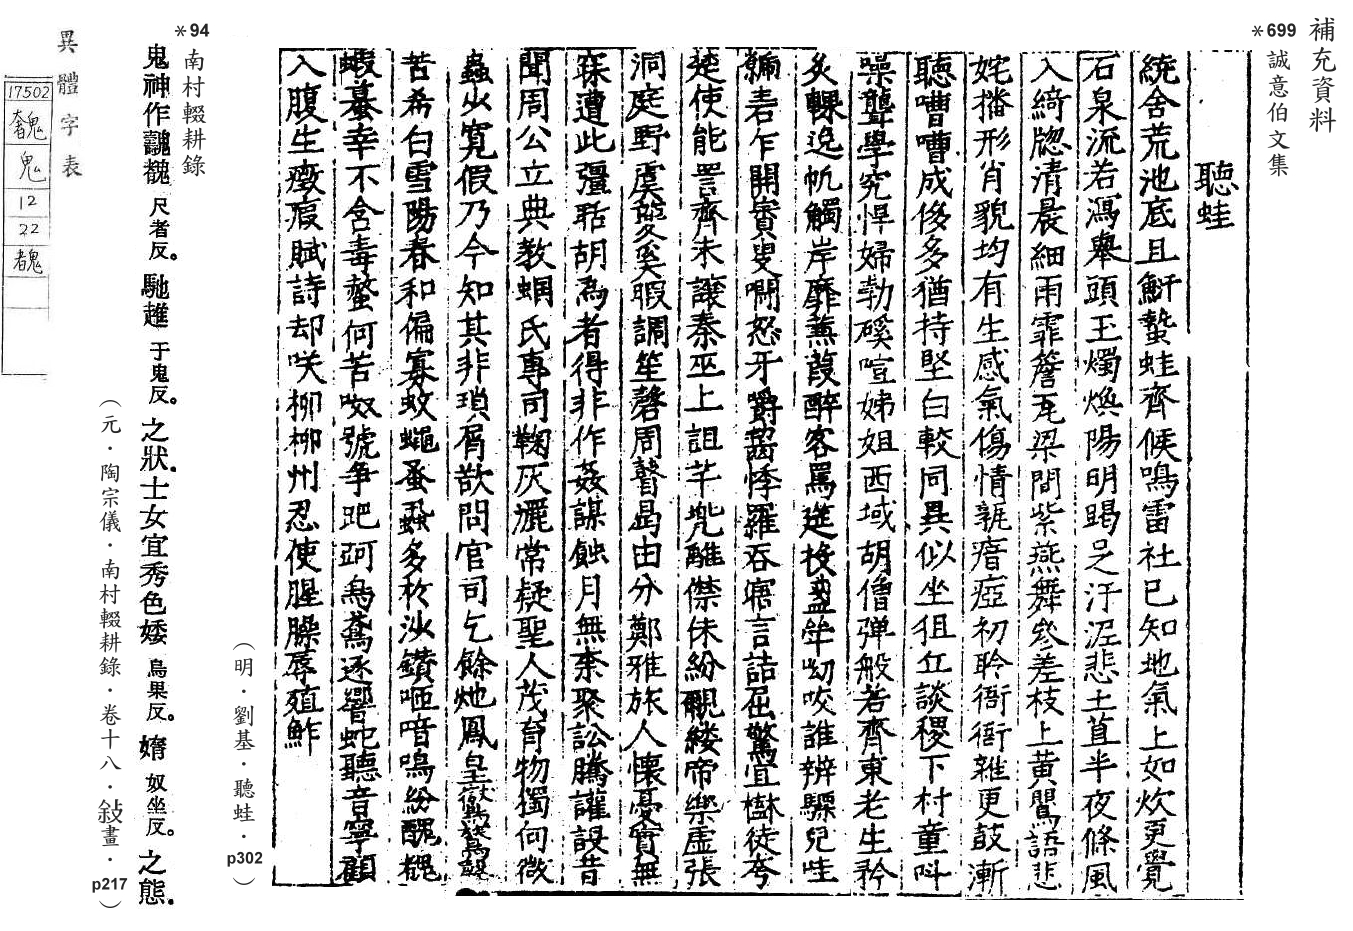 補充資料
*699
誠意伯文集
聽蛙
繞舍荒池底且蛙齊候鳴雷社已知地氣上如炊更覺
石泉流若瀉舉頭玉燭煥陽明蹋足汙泥悲土苴半夜條風
入綺牕清晨細雨霏簷瓦梁間紫燕舞參差枝上黄鸎語悲
姹播形肖貌均有生感氣傷情誰瘖瘂初聆衙衙雜更鼓漸
聽嘈嘈成侈多猶持堅白較同異似坐狙丘談稷下村童呌
噪聾學究悍婦勃磎喧娣姐西域胡僧弹般若齊東老生矜
炙輠逸帆觸岸靡蕪葭醉客罵筵投盞斚呦咬誰辨騾兒哇
乍開賓叟嘲怒牙爵齧悸羅吞寤言詰屈驚宜樹徒夸
楚使能詈齊未讓秦巫上詛芊兜離僸佅紛覼縷帝樂虛張
洞庭野虞夔奚暇調笙磬周瞽曷由分鄭雅旅人懷憂實無
寐遭此彊聒胡為者得非作姦謀蝕月無柰聚訟騰讙設昔
聞周公立典教蟈氏專司鞠灰灑常疑聖人茂育物獨何微
蟲少寬假乃今知其非瑣屑欲問官司乞餘灺鳳皇
苦希白雪陽春和偏寡蚊蠅蚤蝨多於沙鑽咂喑嗚紛醜䰩
蝦蟇幸不含毒螫何苦呶號爭跁跒烏鳶逐響蛇聽音寧顧
入腹生癥瘕賦詩却咲柳柳州忍使腥臊辱殖鮓
（明．劉基．聽蛙．p302）
*94
南村輟耕錄
鬼神作䰩尺者反。馳趡于鬼反。之狀。士女宜秀色婑烏果反。婿奴坐反。之態。
（元．陶宗儀．南村輟耕錄．卷十八．敍畫．p217）
異體字表
17502
鬼
12
22
䰩